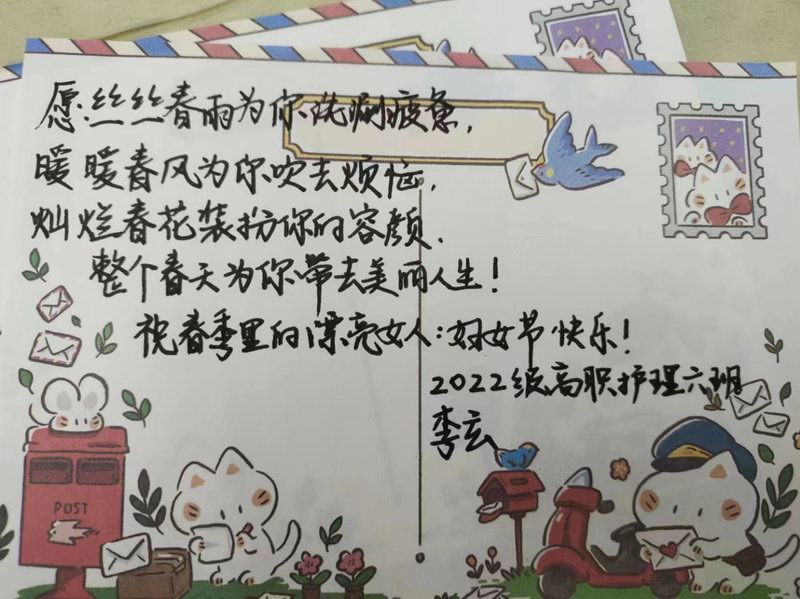 愿丝丝春雨为你洗涮疲惫，
暖暖春风为你吹去烦恼，
灿烂春花装扮你的容颜．
整个春天为你带去美丽人生！
祝春季里的漂亮女人：妇女节快乐！
2022级高职护理六班
李玄
POST